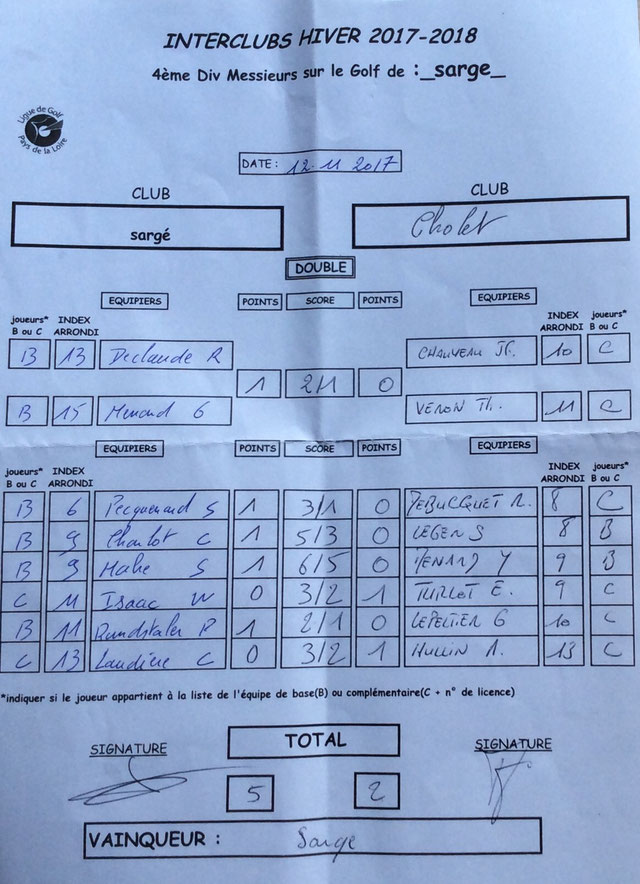 INTERCLUBS HIVER 2017-2018
4ème Div Messieurs sur le Golf de :_sarge_
Ligue de Golf
Pays de la Loire
DATE : 12.11.2017
CLUB CLUB
sargé Cholet
DOUBLE
EQUIPIERS POINTS SCORE POINTS EQUIPIERS
joueurs* B ou C INDEX ARRONDI INDEX ARRONDI joueurs* B ou C
B 13 Declaude R CHAUVEAU 10 C
1 2/1 0
B 15 Menard G VERON Th. 11 C
EQUIPIERS POINTS SCORE POINTS EQUIPIERS
joueurs* B ou C INDEX ARRONDI INDEX ARRONDI joueurs* B ou C
B 6 Pecquenard S 1 3/1 0 DEBUCQUET R. 8 C
B 9 Charlot C 1 5/3 0 LEGEN S 8 B
B 9 Mahe S 1 6/5 0 MENARD Y 9 B
C 11 Isaac W 0 3/2 1 E. 9 C
B 11 P 1 2/1 0 LEPELTIER G 10 C
C 13 Laudière C 0 3/2 1 HULLIN A. 13 C
*indiquer si le joueur appartient à la liste de l'équipe de base(B) ou complémentaire(C + n° de licence)
SIGNATURE TOTAL SIGNATURE
5 2
VAINQUEUR : Sarge